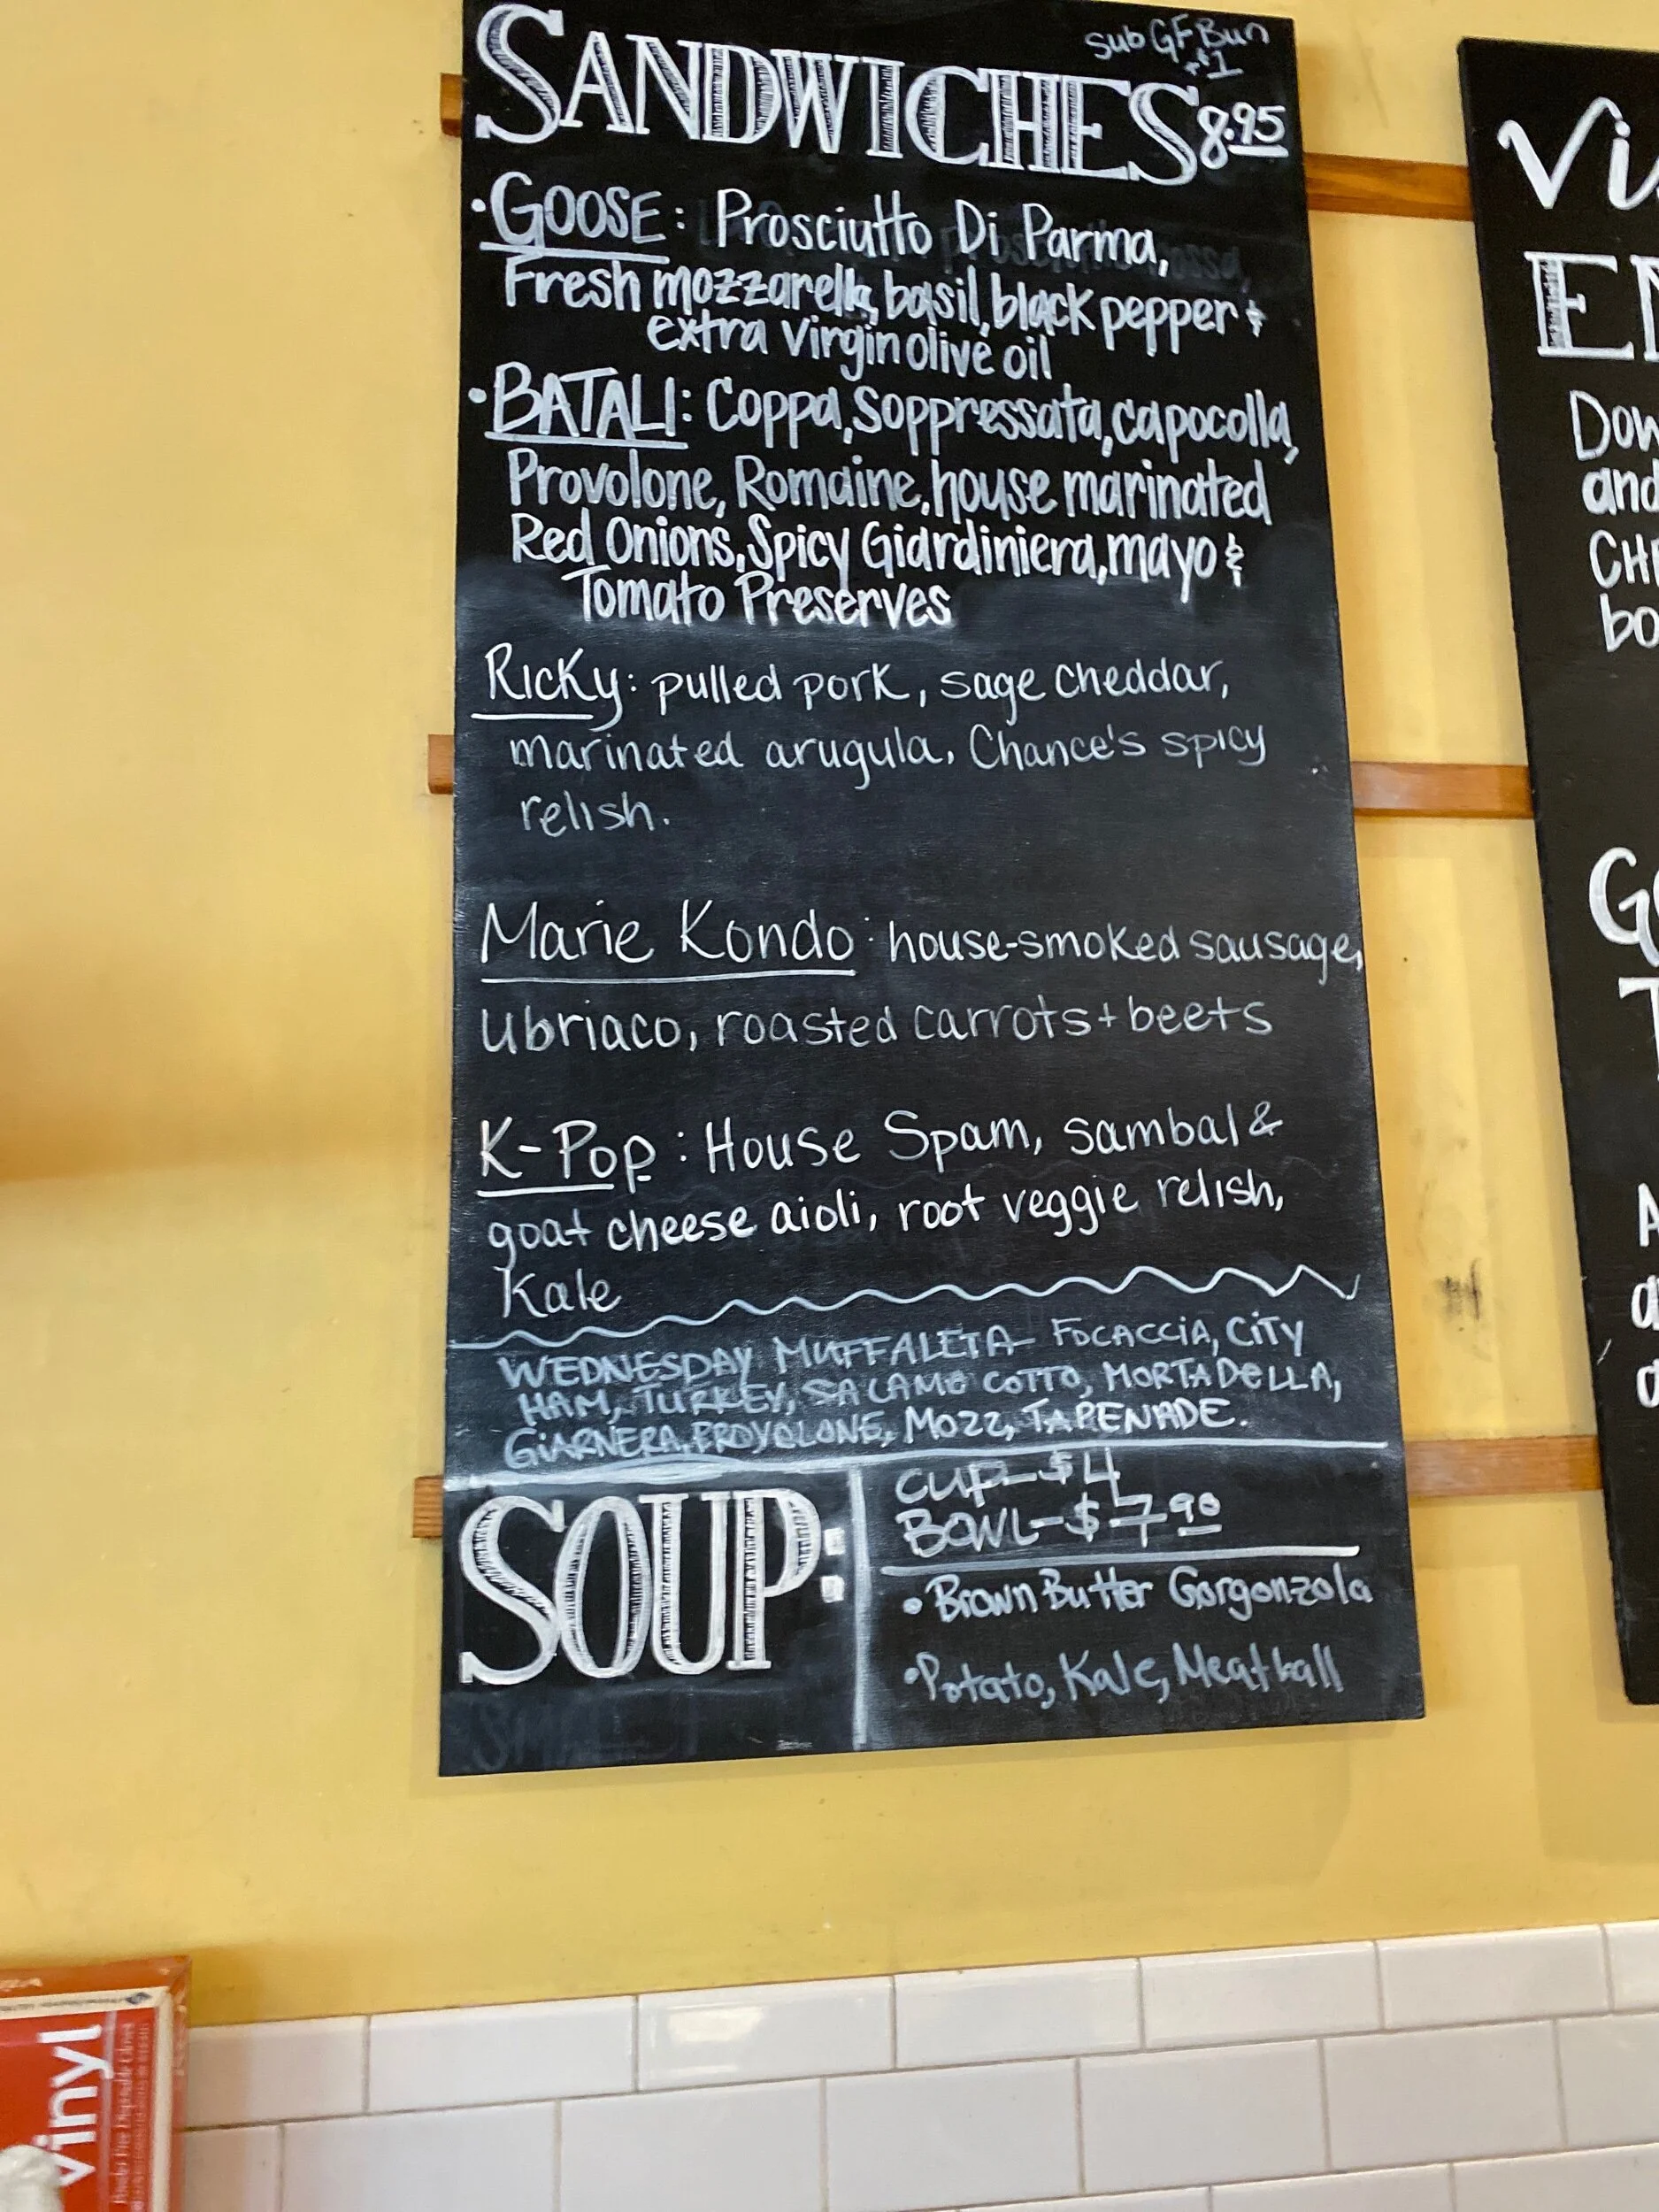 Sub GF Bun
+$1
SANDWICHES 8.95
• GOOSE: Prosciutto Di Parma,
Fresh mozzarella, basil, black pepper &
extra virgin olive oil
• BATALI: Coppa, Soppressata, capocolla,
Provolone, Romaine, house marinated
Red Onions, Spicy Giardiniera, mayo &
Tomato Preserves
Ricky: pulled pork, sage cheddar,
marinated arugula, Chance's spicy
relish.
Marie Kondo: house-smoked sausage,
Ubriaco, roasted carrots + beets
K-Pop: House Spam, sambal &
goat cheese aioli, root veggie relish,
Kale
WEDNESDAY MUFFALETA- FOCACCIA, CITY
HAM, TURKEY, SALAME COTTO, MORTADELLA,
GIARNERA, PROVOLONE, MOZZ, TAPENADE.
SOUP:
CUP-$4
BOWL-$7.90
• Brown Butter Gorgonzola
• Potato, Kale, Meatball
Vi
EN
Dow
and
CHE
bo
Go
T
A
a
a
vinyl